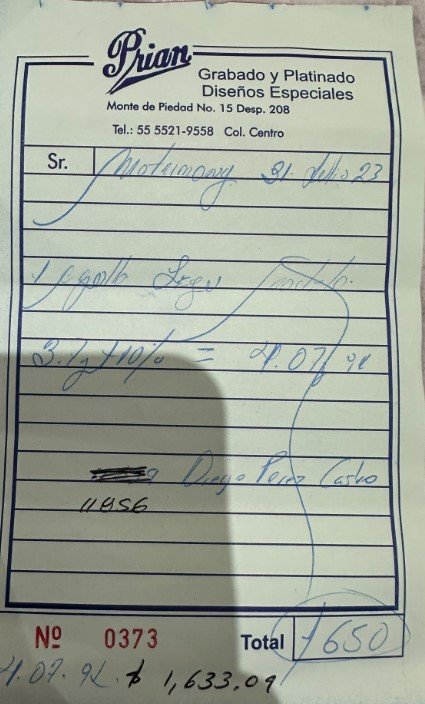 Prian
Grabado y Platinado
Diseños Especiales
Monte de Piedad No. 15 Desp. 208
Tel.: 55 5521-9558 Col. Centro
Sr. 31 Julio 23
1
3.7g +10% = 4.07g
Diego Perez Castro
11956
Nº 0373 Total 650
4.07. $ 1,633.09